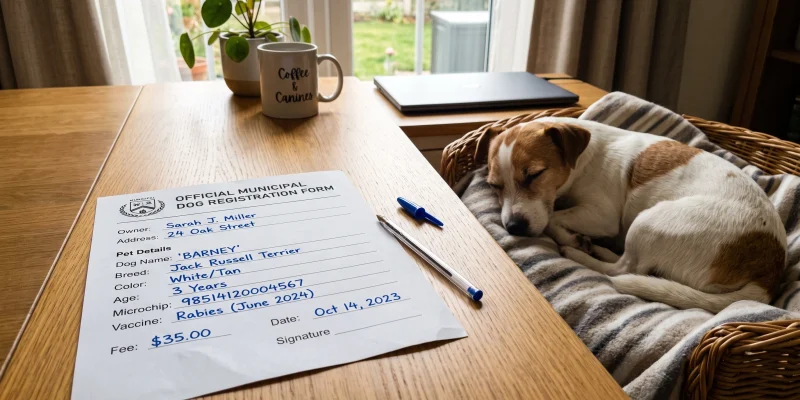 Coffee
&
Canines
OFFICIAL MUNICIPAL
DOG REGISTRATION FORM
Owner: Sarah J. Miller
Address: 24 Oak Street
Pet Details
Dog Name: 'BARNEY'
Breed: Jack Russell Terrier
Color: White/Tan
Age: 3 Years
Microchip: 98514120004567
Vaccine: Rabies (June 2024)
Fee: $35.00 Date: Oct 14, 2023
Signature